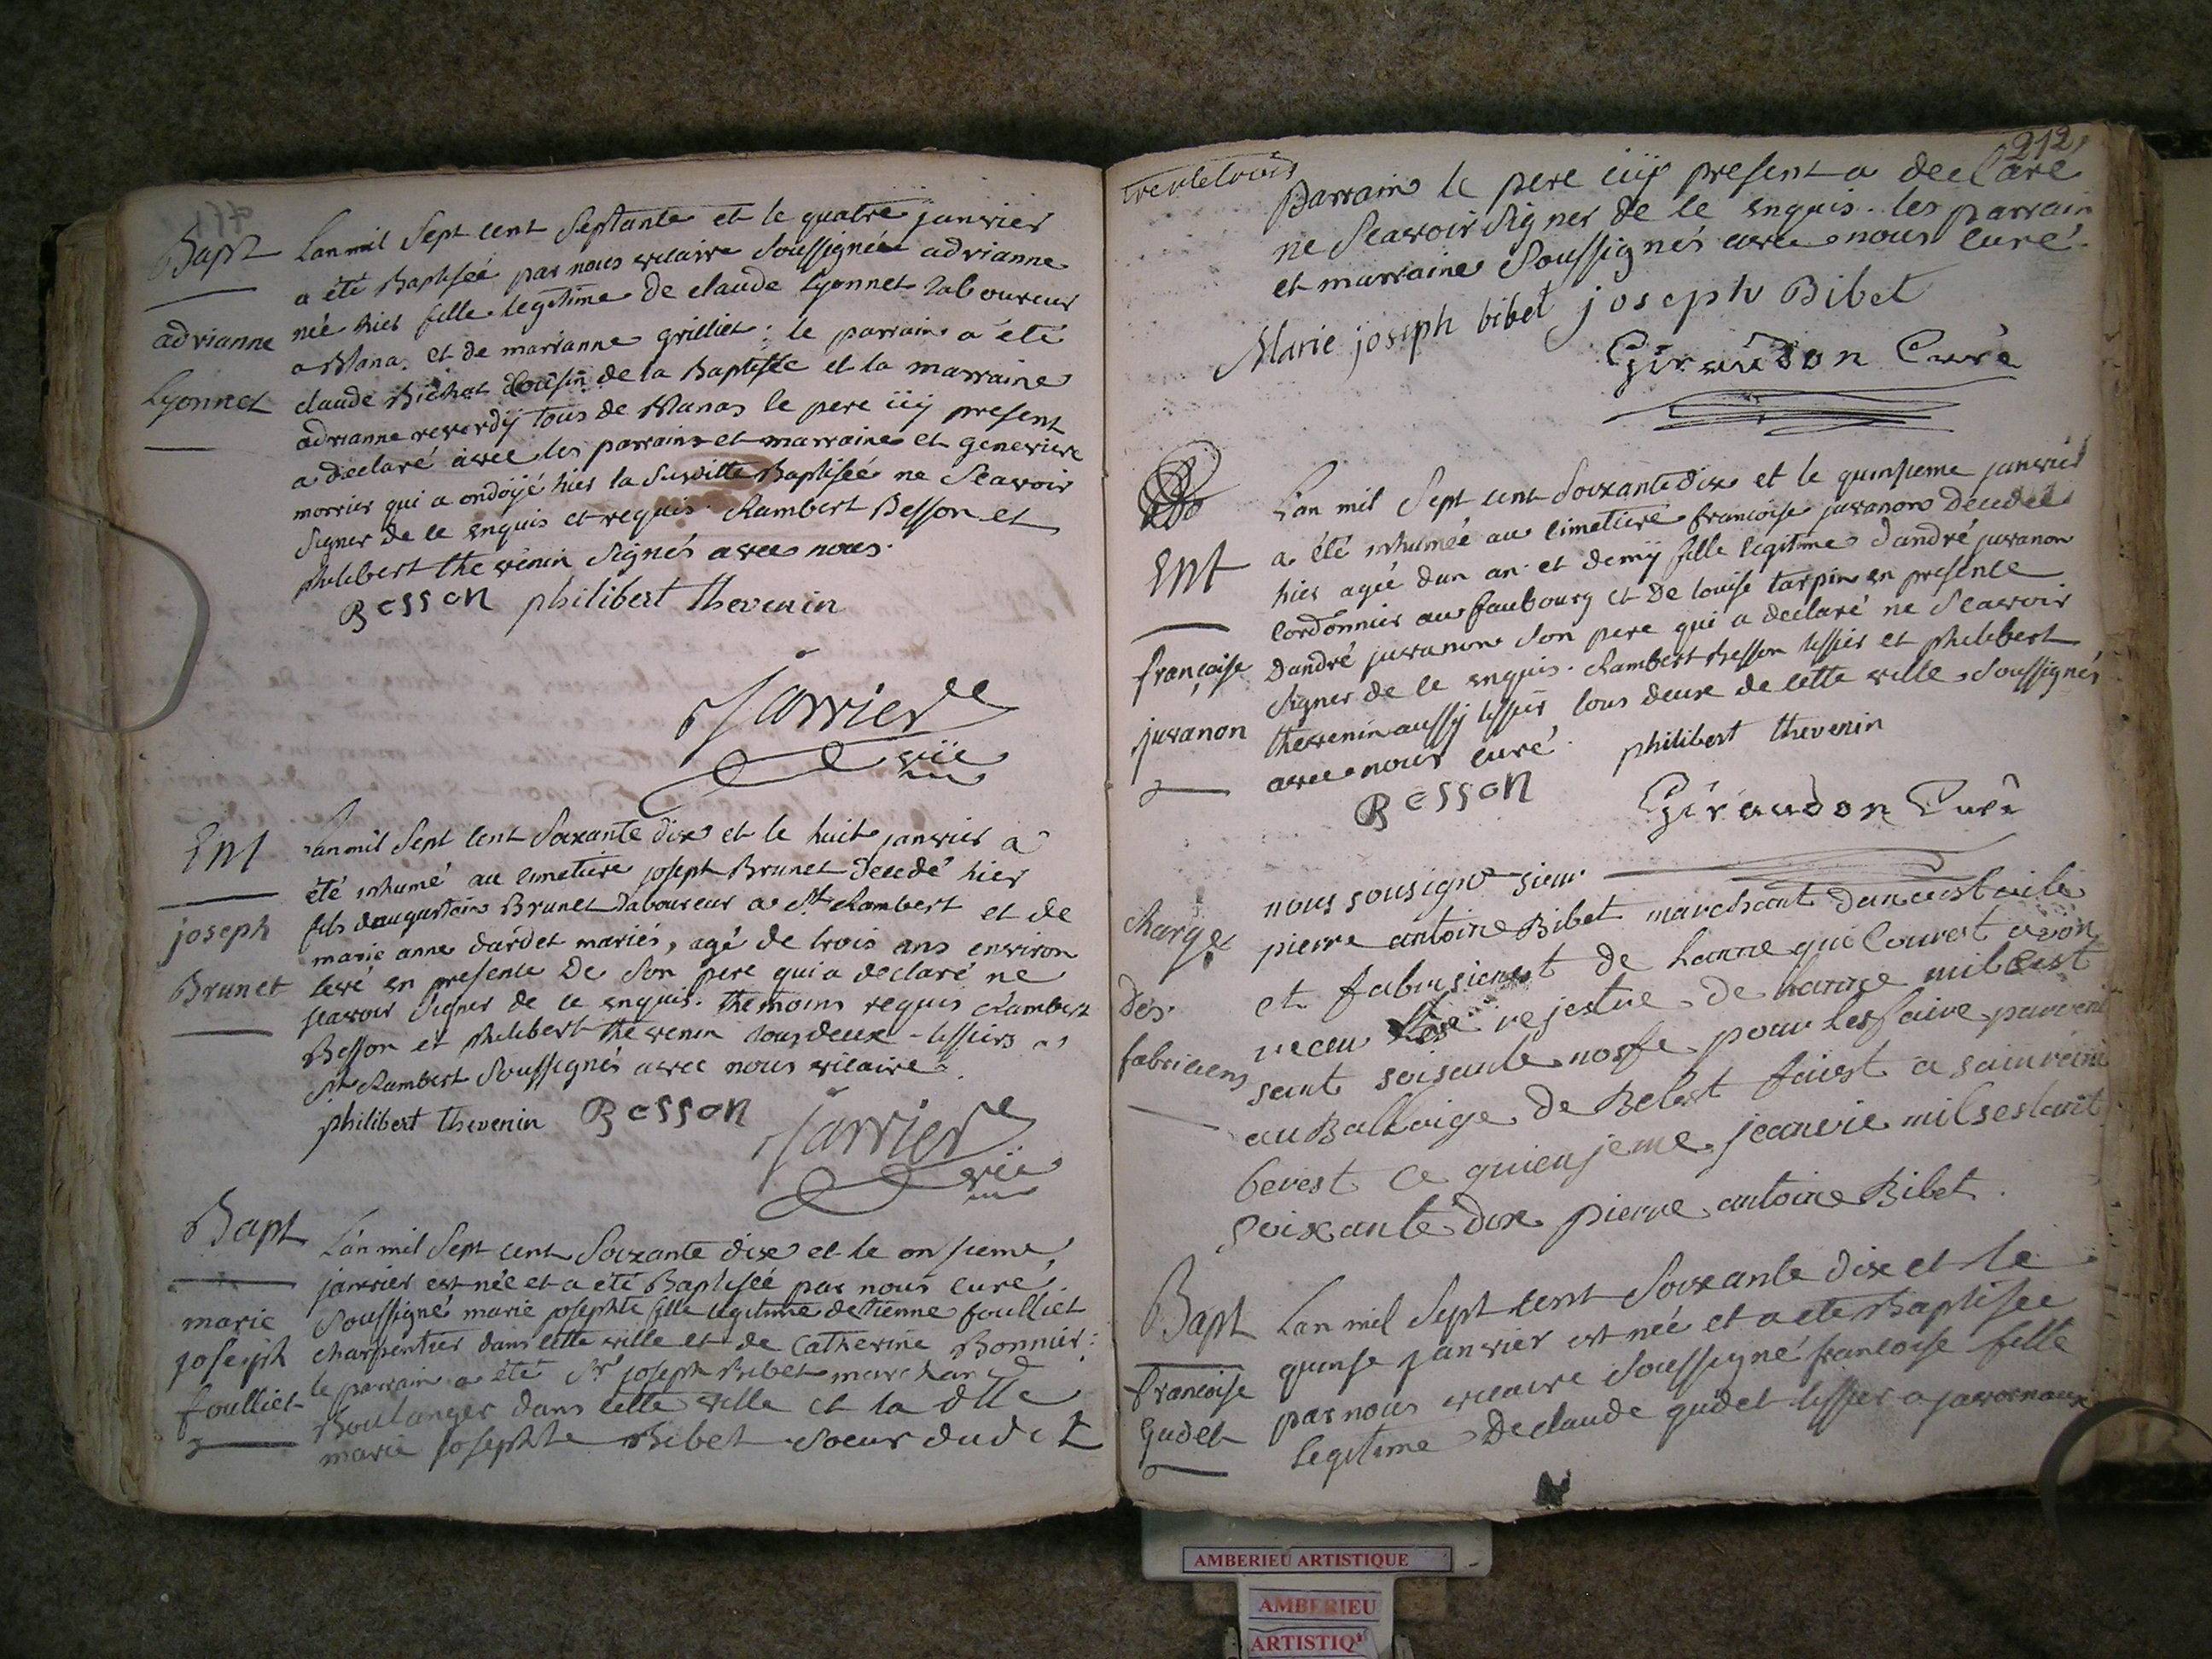 Bapt
adrianne
Lyonnet
Lan mil Sept cent Septante et le quatre janvier
a été Baptiseé par nous vicaire Soussigné adrianne
neé hier fille legitime de claude Lyonnet laboureur
a Mana. et de marianne grilliet : le parrain a été
claude Bichat Cousin de la Baptisée et la marraine
adrianne reverdÿ tous de Manas le pere icÿ present
a declaré avec les parrains et marraine et genevieve
morrier qui a ondoÿé hier la Suditte Baptiseé ne Scavoir
Signer de ce enquis et requis. Rambert Besson et
philibert thevenin Signés avec nous.
Besson philibert thevenin
Jarrier
vic
Ent
joseph
Brunet
Lan mil Sept cent Soixante dix et le huit janvier a
été inhumé au cimetiere joseph Brunet decedé hier
fils daugustain Brunet Laboureur a St. Rambert et de
marie anne dardet mariés, agé de trois ans environ
levé en presence de Son pere qui a declaré ne
scavoir Signer de ce enquis. themoins requis Rambert
Besson et philibert thevenin tous deux tissiers a
St Rambert Soussignés avec nous vicaire.
philibert thevenin Besson
Jarrier
vic
Bapt
marie
joseph
foulliet
L'an mil Sept cent Soixante dix et le onsieme
janvier est née et a été Baptiseé par nous curé
Soussigné marie josephte fille legitime detienne foulliet
charpentier dans cette ville et de Catherine Bonnier :
le parrain a été Sr joseph Bibet marchand
Boulanger dans cette ville et la dlle
marie josephte Bibet Soeur dudit
trentetrois
212
Parrain le pere icÿ present a declare
ne Scavoir Signer de ce enquis. les parrain
et marraine Soussignés avec nous curé.
Marie joseph bibet joseph Bibet
Giraudon Curé
Ent
françoise
juvanon
Lan mil Sept cent Soixantedix et le quinsieme janvier
a été inhumeé au cimetiere francoise juvanon decedeé
hier ageé dun an et demÿ fille legitime dandré juvanon
Cordonnier au faubourg et de louise tarpin en presence
dandré juvanon Son pere qui a declaré ne Scavoir
Signer de ce enquis. Rambert Besson tissier et philibert
thevenin aussÿ tissier tous deux de cette ville Soussignés
avec nous curé.
Besson philibert thevenin
Giraudon Curé
Charge
des
fabriciens
nous sousigne sieur
pierre antoine Bibet marchant
et de lanne qui Couvrest avoir
receu rejestre de lanne mil
sant soisante pour les faire
au de Belest faiest a sainran
berest ce quienjeme jeanvie mil
Soixante dix pierre antoine Bibet.
Bapt
francoise
Gudet
Lan mil Sept cent Soixante dix et le
quinse janvier est neé et a ete Baptisee
par nous vicaire Soussigné francoise fille
legitime De claude gudet tissier a javornaux
AMBERIEU ARTISTIQUE
AMBERIEU
ARTISTIQ